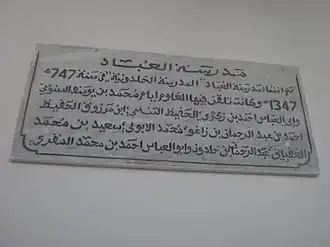 مدرسة العباد
تم انشاء مدرسة العباد "المدرسة الخلدونية" في سنة 747هـ
1347م وكانت تلقى فيها العلوم ايام محمد بن يوسف السنوسي
وابي العباس احمد بن زكري، الحفيظ التنسي، ابن مرزوق الحفيظ
احمد بن عبد الرحمان بن زاغو، محمد الابولي، سعيد بن محمد
العقباني، عبد الرحمان بن خلدون وابو العباس احمد بن محمد المقري.